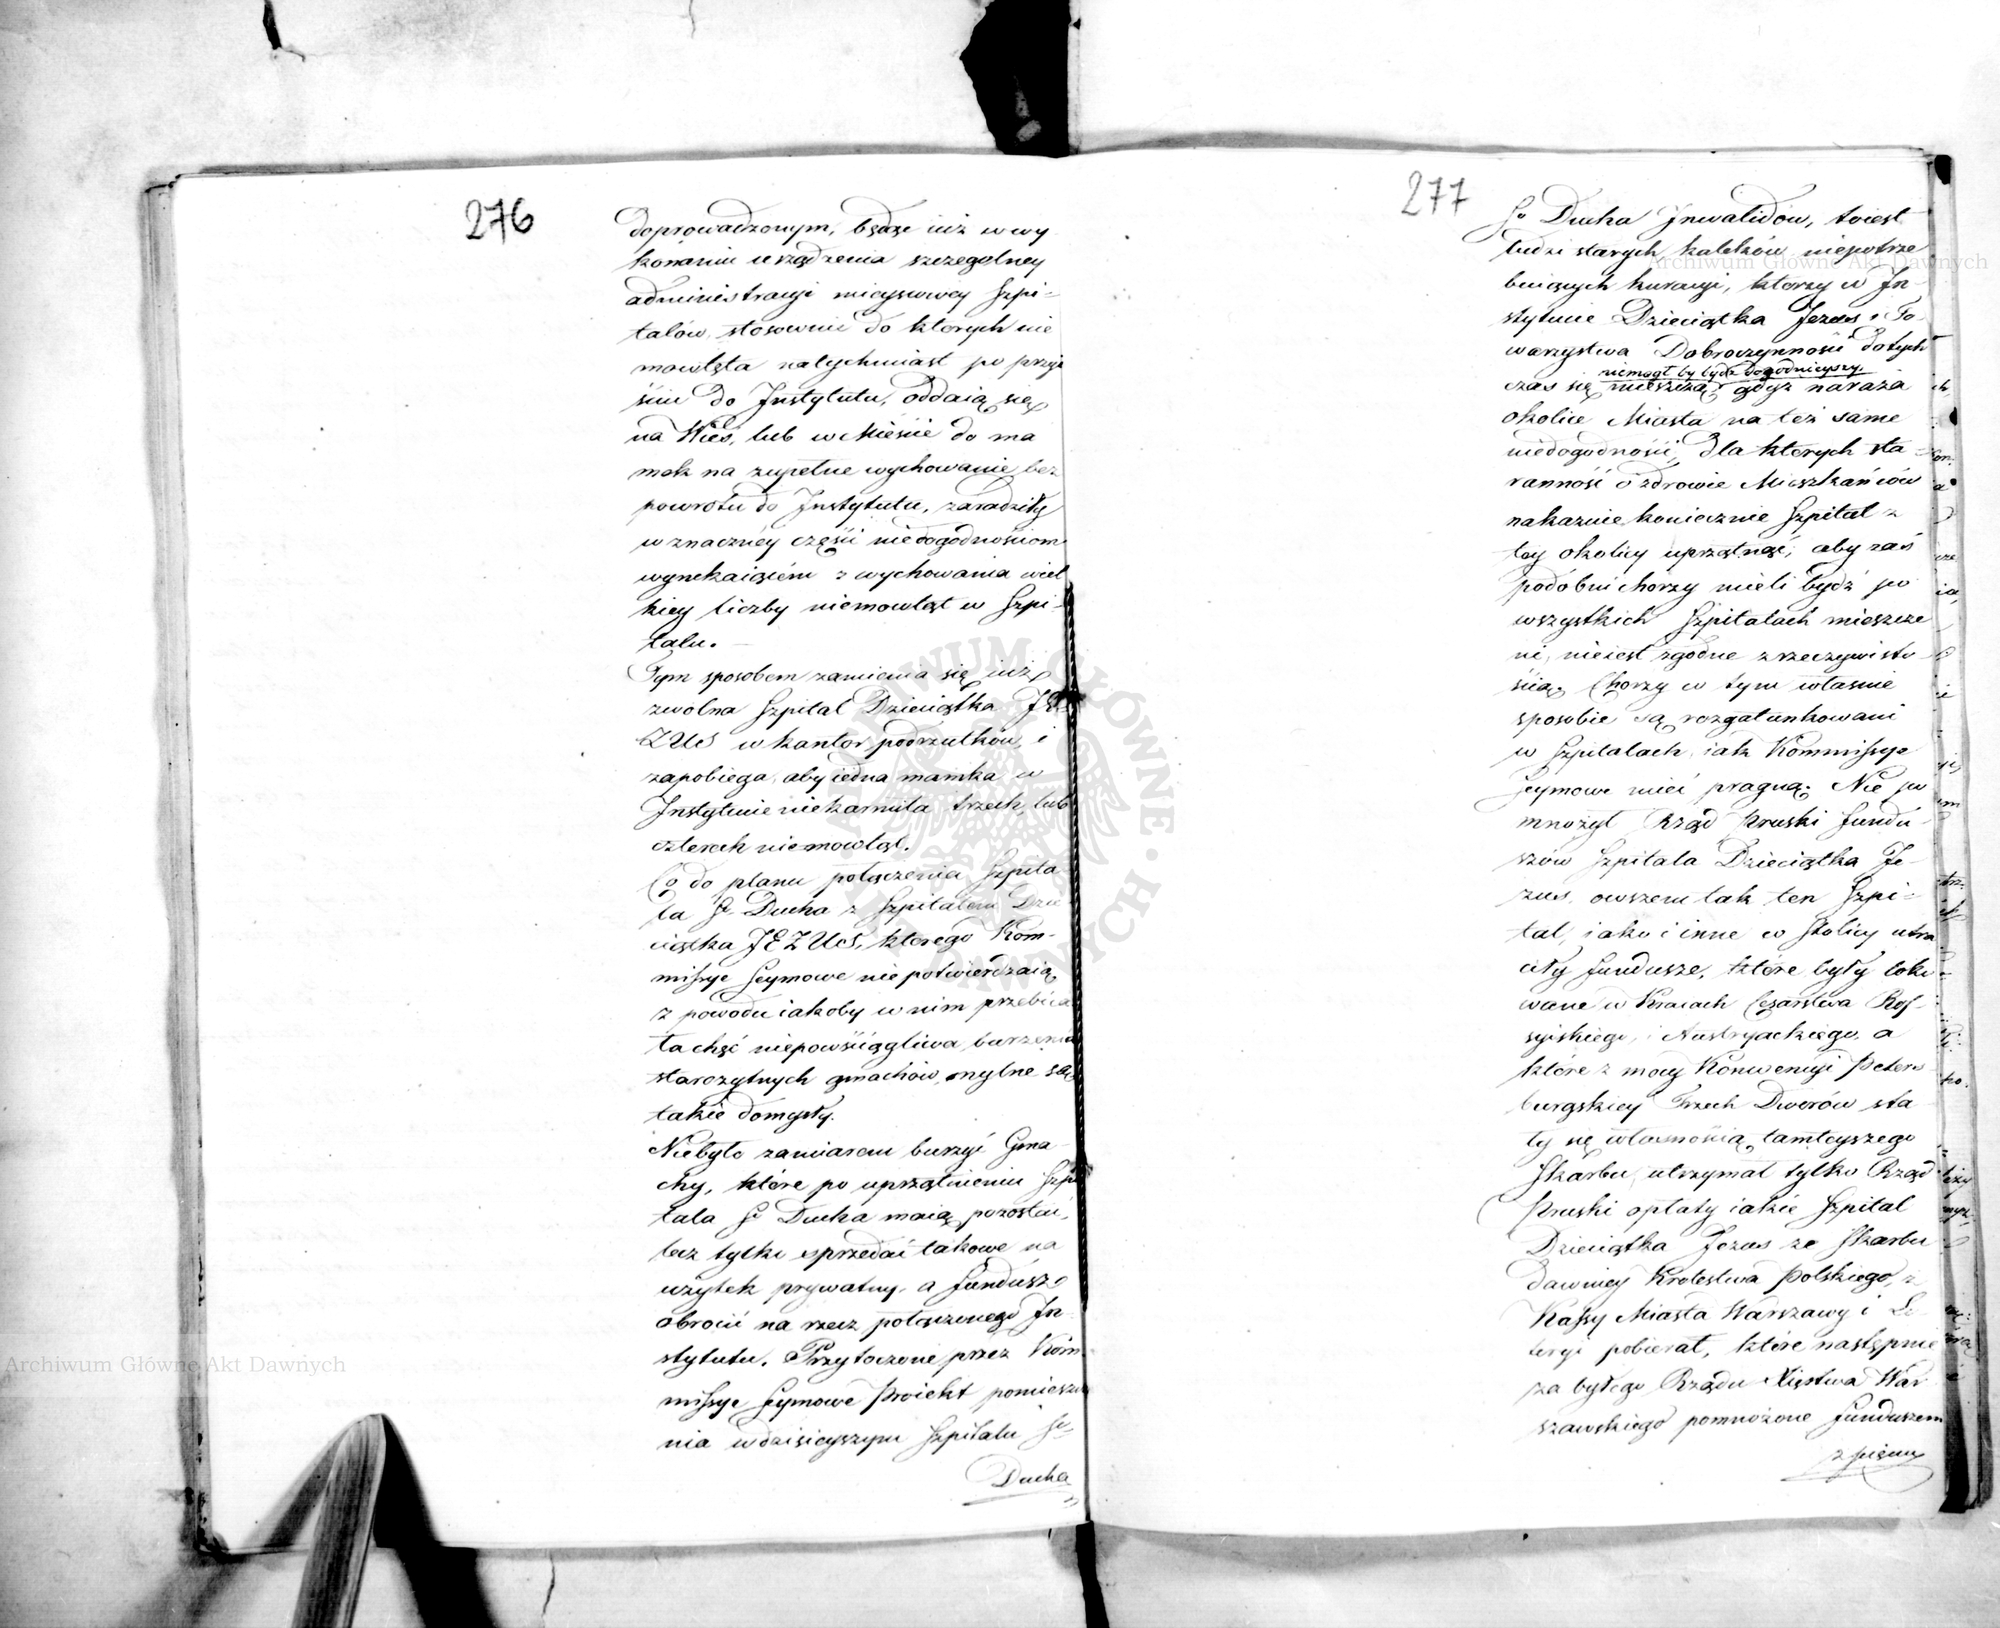 276
doprowadzonym, będąc iuż w wy
konaniu urządzenia szczegolney
administracyi mieyscowey Szpi-
talów, stosownie do których nie
mowlęta natychmiast po przyi
ściu do Instytutu, oddaią się
na Wieś, lub w Mieście do ma
mek na zupełne wychowanie bez
powrotu do Instytutu, zaradziły
w znaczney części niedogodnościom
wynikaiącém z wychowania wiel
kiey liczby niemowląt w Szpi-
talu. —
Tym sposobem zamienia się iuż
zwolna Szpital Dzieciątka JE
ZUS w kantor podrzutków, i
zapobiega, aby iedna mamka w
Instytucie niekarmiła trzech, lub
czterech niemowląt.
Co do planu połączenia Szpita
la Sº Ducha z Szpitalem Dzie
ciątka JEZUS, którego Kom-
missye Seymowe niepotwierdzaią
z powodu iakoby w nim przebiia
ła chęć niepowściągliwa burzenia
starożytnych gmachów, mylne są
takie domysły.
Niebyło zamiarem burzyć Gma
chy, które po uprzątnieniu Szpi
tala Sº Ducha maią pozostać,
lecz tylko sprzedać takowe na
użytek prywatny, a fundusz
obrócić na rzecz połączonego In-
stytutu. Przytoczone przez Kom
missye Seymowe Proiekt pomieszcze
nia w dzisieyszym Szpitalu Sº
Ducha
277
Sº Ducha Jnwalidów, toiest
ludzi starych kaleków niepotrze
buiących kuracyi, którzy w In-
stytucie Dzieciątka Jezus i To-
warzystwa Dobroczynności dotych
niemógł by bydź dogodnieyszy
czas się mieszczą, gdyż naraża
okolice Miasta na też same
niedogodności, dla których sta-
ranność o zdrowie Mieszkańców
nakazuie koniecznie Szpital z
tey okolicy uprzątnąć, aby zaś
podobni chorzy mieli bydź po
wszystkich Szpitalach mieszcze
ni, nieiest zgodne z rzeczywisto
ścią. Chorzy w tym właśnie
sposobie są rozgatunkowani
w Szpitalach, iak Kommissye
Seymowe mieć pragną. Nie po
mnożył Rząd Pruski fundu-
szów Szpitala Dzieciątka Je-
zus, owszem tak ten Szpi-
tal, iako i inne w Stolicy utra
ciły fundusze, które były loko
wane w Kraiach Cesarstwa Ros-
syiskiego, i Austryackiego, a
które z mocy Konwencyi Peters
burgskiey Trzech Dworów sta
ły się własnością tamteyszego
Skarbu, utrzymał tylko Rząd
Pruski opłaty iakie Szpital
Dzieciątka Jezus ze Skarbu
dawniey Krolestwa Polskiego, z
Kassy Miasta Warszawy i Lo
teryi pobierał, które następnie
za byłego Rządu Xięstwa War
szawskiego pomnożone funduszem